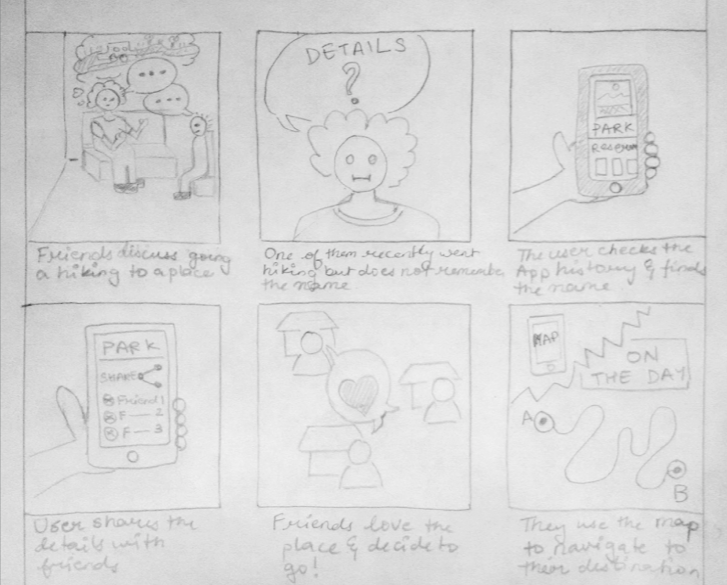 ...
...
Friends discuss going
a hiking to a place
DETAILS
?
One of them recently went
hiking but does not remember
the name
PARK
The user checks the
App history & finds
the name
PARK
SHARE
Friend 1
F — 2
F — 3
User shares the
details with
friends
Friends love the
place & decide to
go!
MAP
ON
THE DAY
A
B
They use the map
to navigate to
their destination